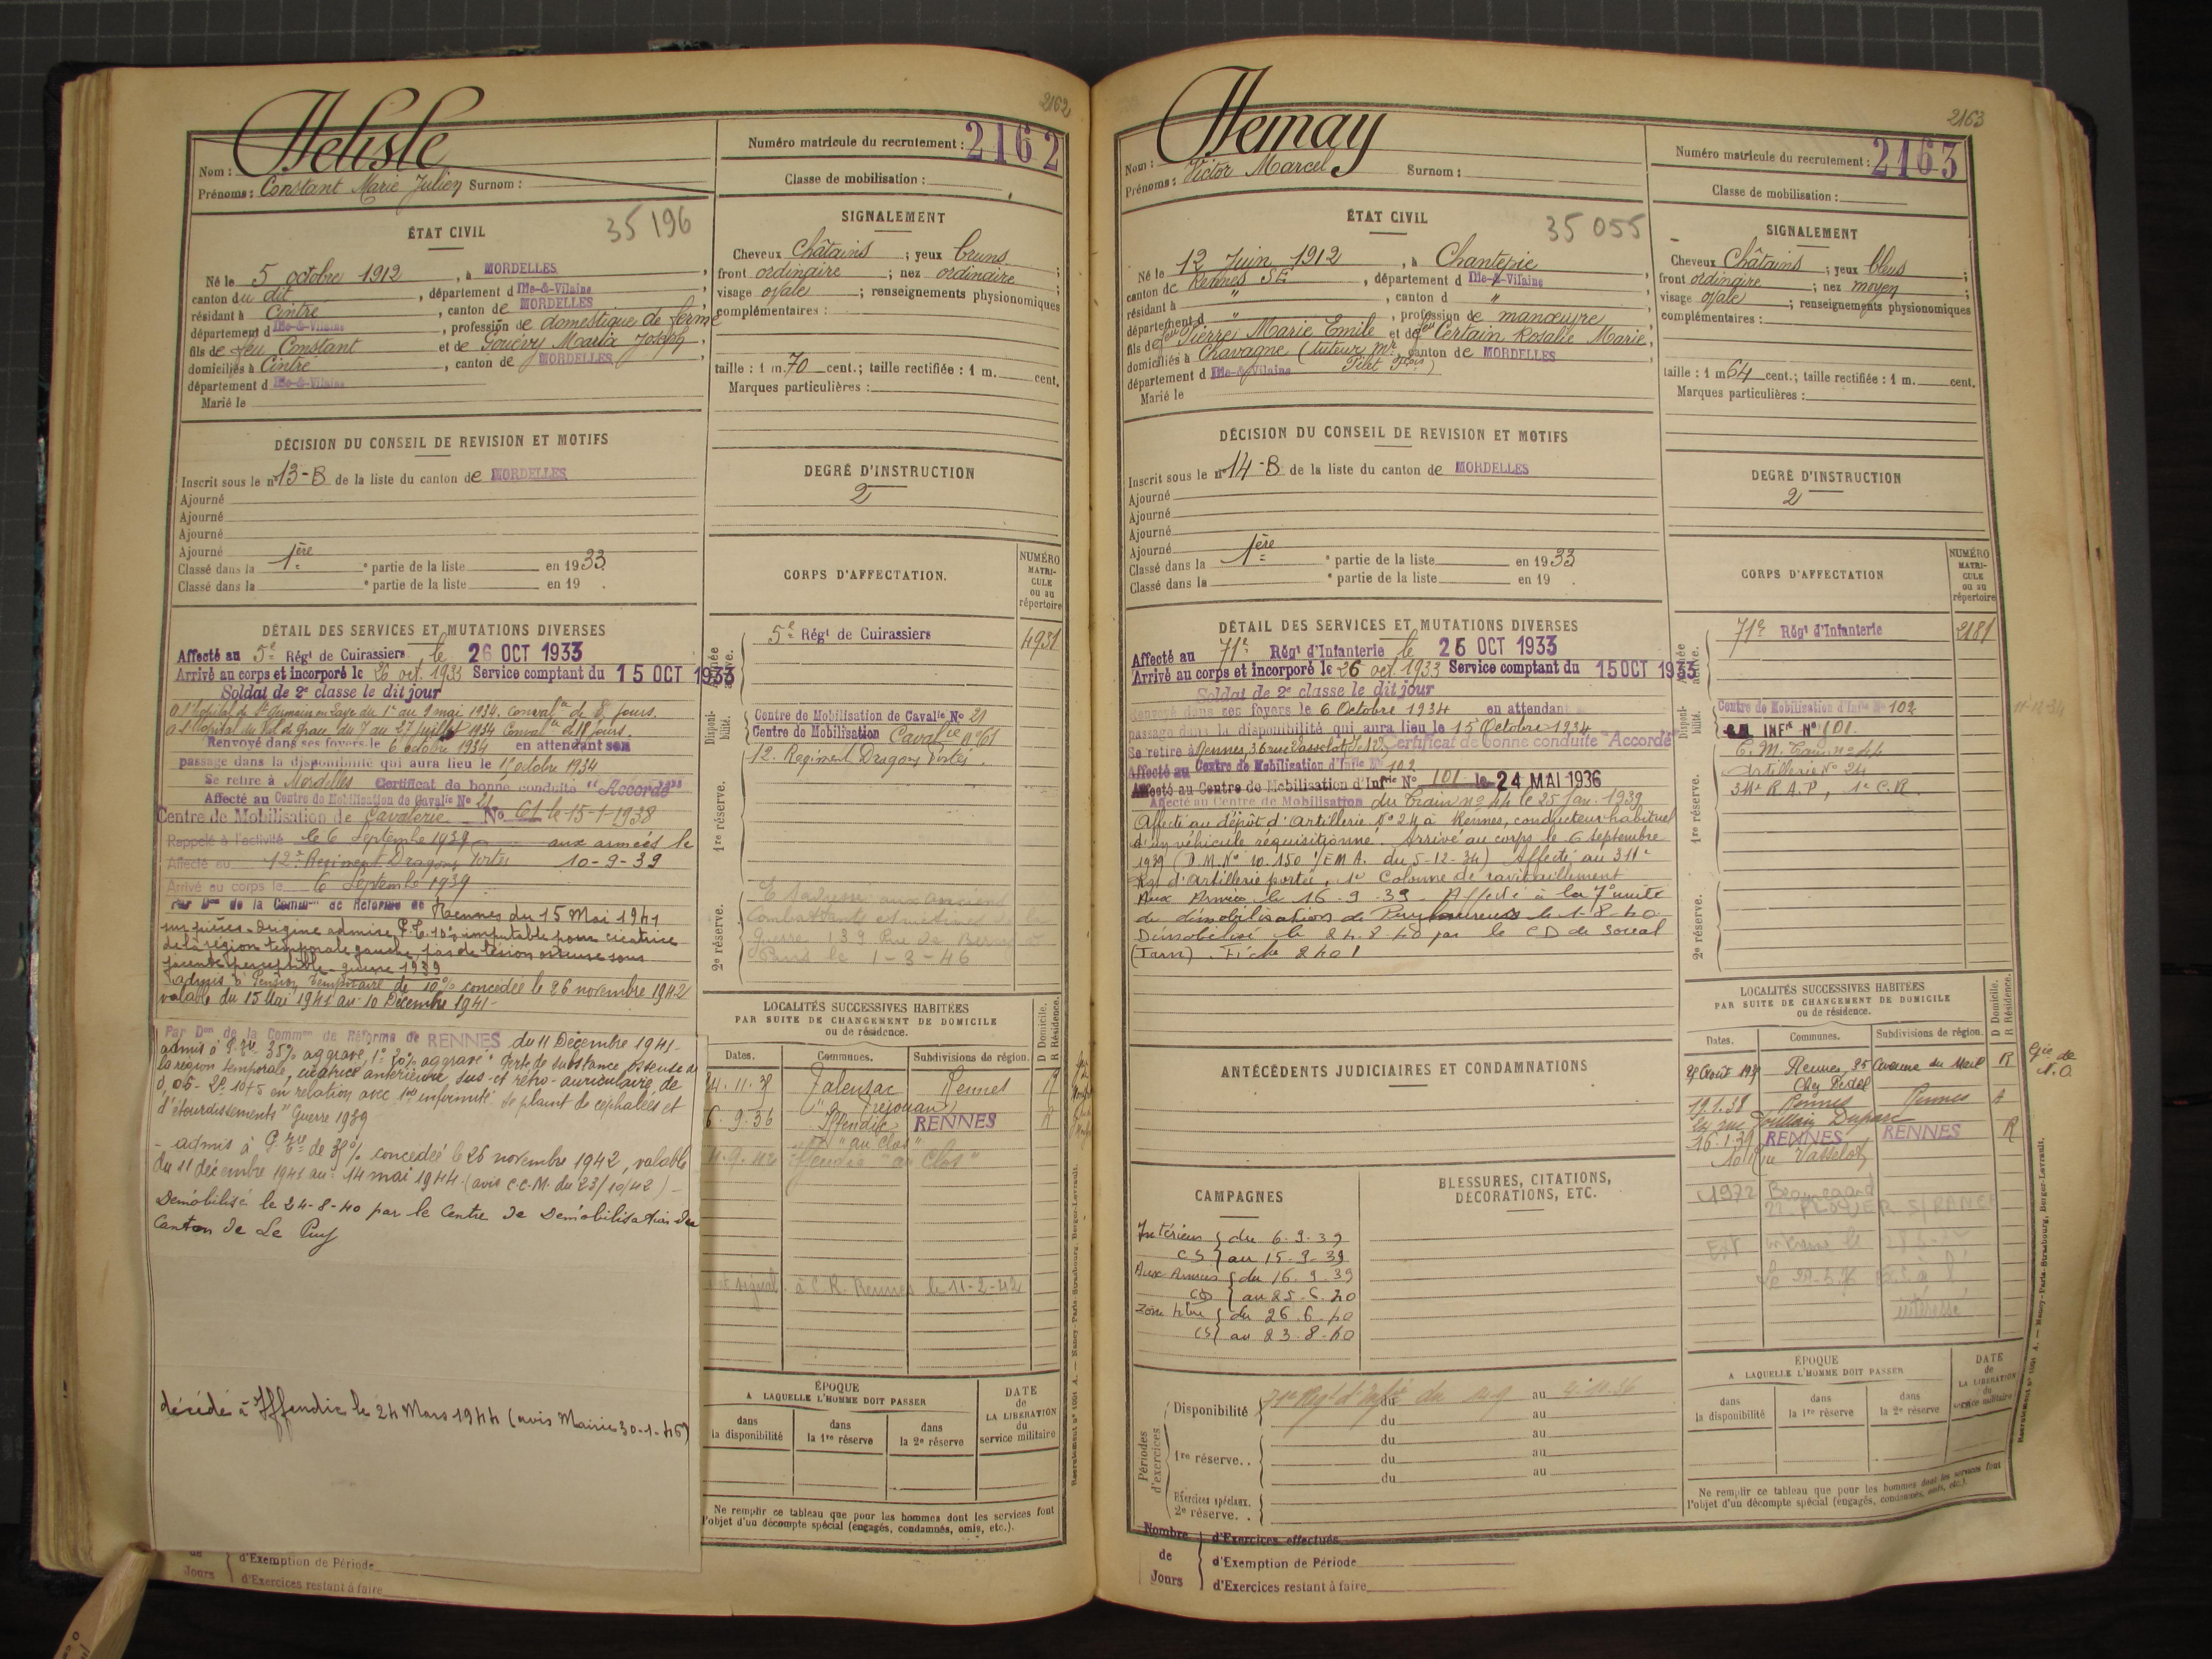 2162
Nom : Helisle
Prénoms : Constant Marie Julien Surnom :
Numéro matricule du recrutement : 2162
Classe de mobilisation :
ÉTAT CIVIL
35196
Né le 5 octobre 1912, à MORDELLES,
canton du dit, département d Ille-&-Vilaine
résidant à Cintré, canton de MORDELLES,
département d Ille-&-Vilaine, profession de domestique de ferme
fils de feu Constant et de Gouévy Maria Joseph,
domiciliés à Cintré, canton de MORDELLES,
département d Ille-&-Vilaine
Marié le
SIGNALEMENT
Cheveux Châtains ; yeux bruns ;
front ordinaire ; nez ordinaire ;
visage ovale ; renseignements physionomiques
complémentaires :
taille : 1 m. 70 cent.; taille rectifiée : 1 m. cent.
Marques particulières :
DÉCISION DU CONSEIL DE REVISION ET MOTIFS
Inscrit sous le n° 13-B de la liste du canton de MORDELLES
Ajourné
Ajourné
Ajourné
Ajourné
Classé dans la 1ère partie de la liste en 1933
Classé dans la e partie de la liste en 19 .
DEGRÉ D'INSTRUCTION
2
CORPS D'AFFECTATION.
NUMÉRO
MATRI-
CULE
ou au
répertoire
DÉTAIL DES SERVICES ET MUTATIONS DIVERSES
Affecté au 5e Régt de Cuirassiers, le 26 OCT 1933
Arrivé au corps et incorporé le 26 oct. 1933 Service comptant du 15 OCT 1933
Soldat de 2e classe le dit jour
à l'hôpital de St Germain en Laye du 1er au 9 mai 1934. Conval ce de 8 jours.
à l'hôpital du Val de Grâce du 9 au 27 juillet 1934 Conval ce de 18 jours.
Renvoyé dans ses foyers le 6 octobre 1934 en attendant son
passage dans la disponibilité qui aura lieu le 15 octobre 1934
Se retire à Mordelles Certificat de bonne conduite "Accordé"
Affecté au Centre de Mobilisation de Cavalie No 21
Centre de Mobilisation de Cavalerie No 61 le 15-1-1938
Rappelé à l'activité le 6 Septembre 1939 aux armées le
Affecté au 12e Régiment Dragons Portés 10-9-39
Arrivé au corps le 6 Septembre 1939
Par Don de la Common de Réforme de Rennes du 15 Mai 1941
sur pièces. Origine admise P.T. 10% imputable pour cicatrice
de la région temporale gauche, pas de lésion osseuse sous
jacente perceptible. guerre 1939
admis à Pension temporaire de 10% concédée le 26 novembre 1942
valable du 15 Mai 1941 au 10 Décembre 1941-
Par Don de la Common de Réforme de RENNES du 11 Décembre 1941-
admis à P. re 35% aggravé, 1° 30% aggravé. Perte de substance osseuse de
la région temporale, cicatrice antérieure, sus et rétro-auriculaire de
0,05 - 2° 10+5 en relation avec 1ère infirmité. Se plaint de céphalées et
d'étourdissements" Guerre 1939
- admis à P. re de 35% concédée le 26 novembre 1942, valable
du 11 décembre 1941 au 14 mai 1944 (avis C.C.M. du 23/10/42) -
Démobilisé le 24-8-40 par le Centre de Démobilisation du
Canton de Le Puy
décédé à Iffendic le 24 Mars 1944 (avis Mairie 30-1-46)
Année active.
5e Régt de Cuirassiers 4931
Disponibilité.
Centre de Mobilisation de Cavalie No 21
Centre de Mobilisation Cavalie n° 61
12. Régiment Dragons Portés.
1re réserve.
2e réserve.
Combattants et victimes
Guerre 139 Rue de Bercy
Paris le 1-3-46
LOCALITÉS SUCCESSIVES HABITÉES
PAR SUITE DE CHANGEMENT DE DOMICILE
ou de résidence.
D Domicile.
R Résidence.
Dates. Communes. Subdivisions de région.
Talensac Rennes R
6.9.36 Iffendic RENNES R
"au Clos"
4.9.42 Iffendic "au Clos"
à C.R. Rennes le 11-2-42
ÉPOQUE
A LAQUELLE L'HOMME DOIT PASSER
dans la disponibilité
dans la 1re réserve
dans la 2e réserve
DATE de LA LIBÉRATION du service militaire
Ne remplir ce tableau que pour les hommes dont les services font
l'objet d'un décompte spécial (engagés, condamnés, omis, etc.).
de Jours
d'Exemption de Période
d'Exercices restant à faire
Recrutement n° 1001 A. — Nancy-Paris-Strasbourg, Berger-Levrault.
2163
Nom : Hemay
Prénoms : Victor Marcel Surnom :
Numéro matricule du recrutement : 2163
Classe de mobilisation :
ÉTAT CIVIL
35055
Né le 12 Juin 1912, à Chantepie
canton de Rennes SE, département d Ille-&-Vilaine
résidant à ", canton d "
département d ", profession de manoeuvre
fils de feu Pierre Marie Emile et de feu Certain Rosalie Marie,
domiciliés à Chavagne (tuteur Mr, canton de MORDELLES
département d Ille-&-Vilaine Pilet Fçois)
Marié le
SIGNALEMENT
Cheveux Châtains ; yeux bleus ;
front ordinaire ; nez moyen ;
visage ovale ; renseignements physionomiques
complémentaires :
taille : 1 m 64 cent.; taille rectifiée : 1 m. cent.
Marques particulières :
DÉCISION DU CONSEIL DE REVISION ET MOTIFS
Inscrit sous le n° 14-B de la liste du canton de MORDELLES
Ajourné
Ajourné
Ajourné
Ajourné
Classé dans la 1ère partie de la liste en 1933
Classé dans la e partie de la liste en 19 .
DEGRÉ D'INSTRUCTION
2
CORPS D'AFFECTATION
NUMÉRO
MATRI-
CULE
ou au
répertoire
DÉTAIL DES SERVICES ET MUTATIONS DIVERSES
Affecté au 71e Régt d'Infanterie le 26 OCT 1933
Arrivé au corps et incorporé le 26 oct. 1933 Service comptant du 15 OCT 1933
Soldat de 2e classe le dit jour
Renvoyé dans ses foyers le 6 Octobre 1934 en attendant
passage dans la disponibilité qui aura lieu le 15 Octobre 1934
Se retire à Rennes, 36 rue Vasselot, I.&V. Certificat de bonne conduite "Accordé"
Affecté au Centre de Mobilisation d'Infie No 102
Affecté au Centre de Mobilisation d'Infrie No 101 le 24 MAI 1936
Affecté au Centre de Mobilisation du Train n° 44 le 25 Jan. 1939
Affecté au dépôt d'Artillerie No 24 à Rennes, conducteur habituel
d'un véhicule réquisitionné. Arrivé au corps le 6 septembre
1939 (D.M. No 10.150 1/EMA. du 5-12-34) Affecté au 311e
Rgt d'Artillerie portée, 1e Colonne de ravitaillement
Aux Armées le 16.9.39. Affecté à la 7e unité
de démobilisation de Puylaurens le 1-8-40
Démobilisé le 24.8.40 par le CD de Soual
(Tarn). Fiche 2401
Année active.
71e Régt d'Infanterie 2181
Disponibilité.
Centre de Mobilisation d'Infie No 102
INFie No 101.
C.M. Train n° 44
Artillerie No 24
311e R.A.P, 1e C.R
1re réserve.
2e réserve.
ANTÉCÉDENTS JUDICIAIRES ET CONDAMNATIONS
LOCALITÉS SUCCESSIVES HABITÉES
PAR SUITE DE CHANGEMENT DE DOMICILE
ou de résidence.
D Domicile.
R Résidence.
Dates. Communes. Subdivisions de région.
Rennes, 35 Avenue du Mail R
19.1.38 Rennes Rennes
16.1.39 RENNES RENNES R
10 Rue Vasselot
1972 Beauregard
22 PLOUER S/RANCE
intéressé
CAMPAGNES
Intérieur { du 6.9.39
CS } au 15.9.39
Aux Armées { du 16.9.39
CD } au 25.6.40
Zone libre { du 26.6.40
CS } au 23.8.40
BLESSURES, CITATIONS,
DÉCORATIONS, ETC.
Périodes d'exercices
Disponibilité 71e Regt d'Infie du au
du au
1re réserve.. du au
du au
du au
Exercices spéciaux.
2e réserve. .
ÉPOQUE
A LAQUELLE L'HOMME DOIT PASSER
dans la disponibilité
dans la 1re réserve
dans la 2e réserve
DATE de LA LIBÉRATION du service militaire
Ne remplir ce tableau que pour les hommes dont les services font
l'objet d'un décompte spécial (engagés, condamnés, omis, etc.).
Nombre de Jours
d'Exercices effectués
d'Exemption de Période
d'Exercices restant à faire
Recrutement n° 1001 A. — Nancy-Paris-Strasbourg, Berger-Levrault.